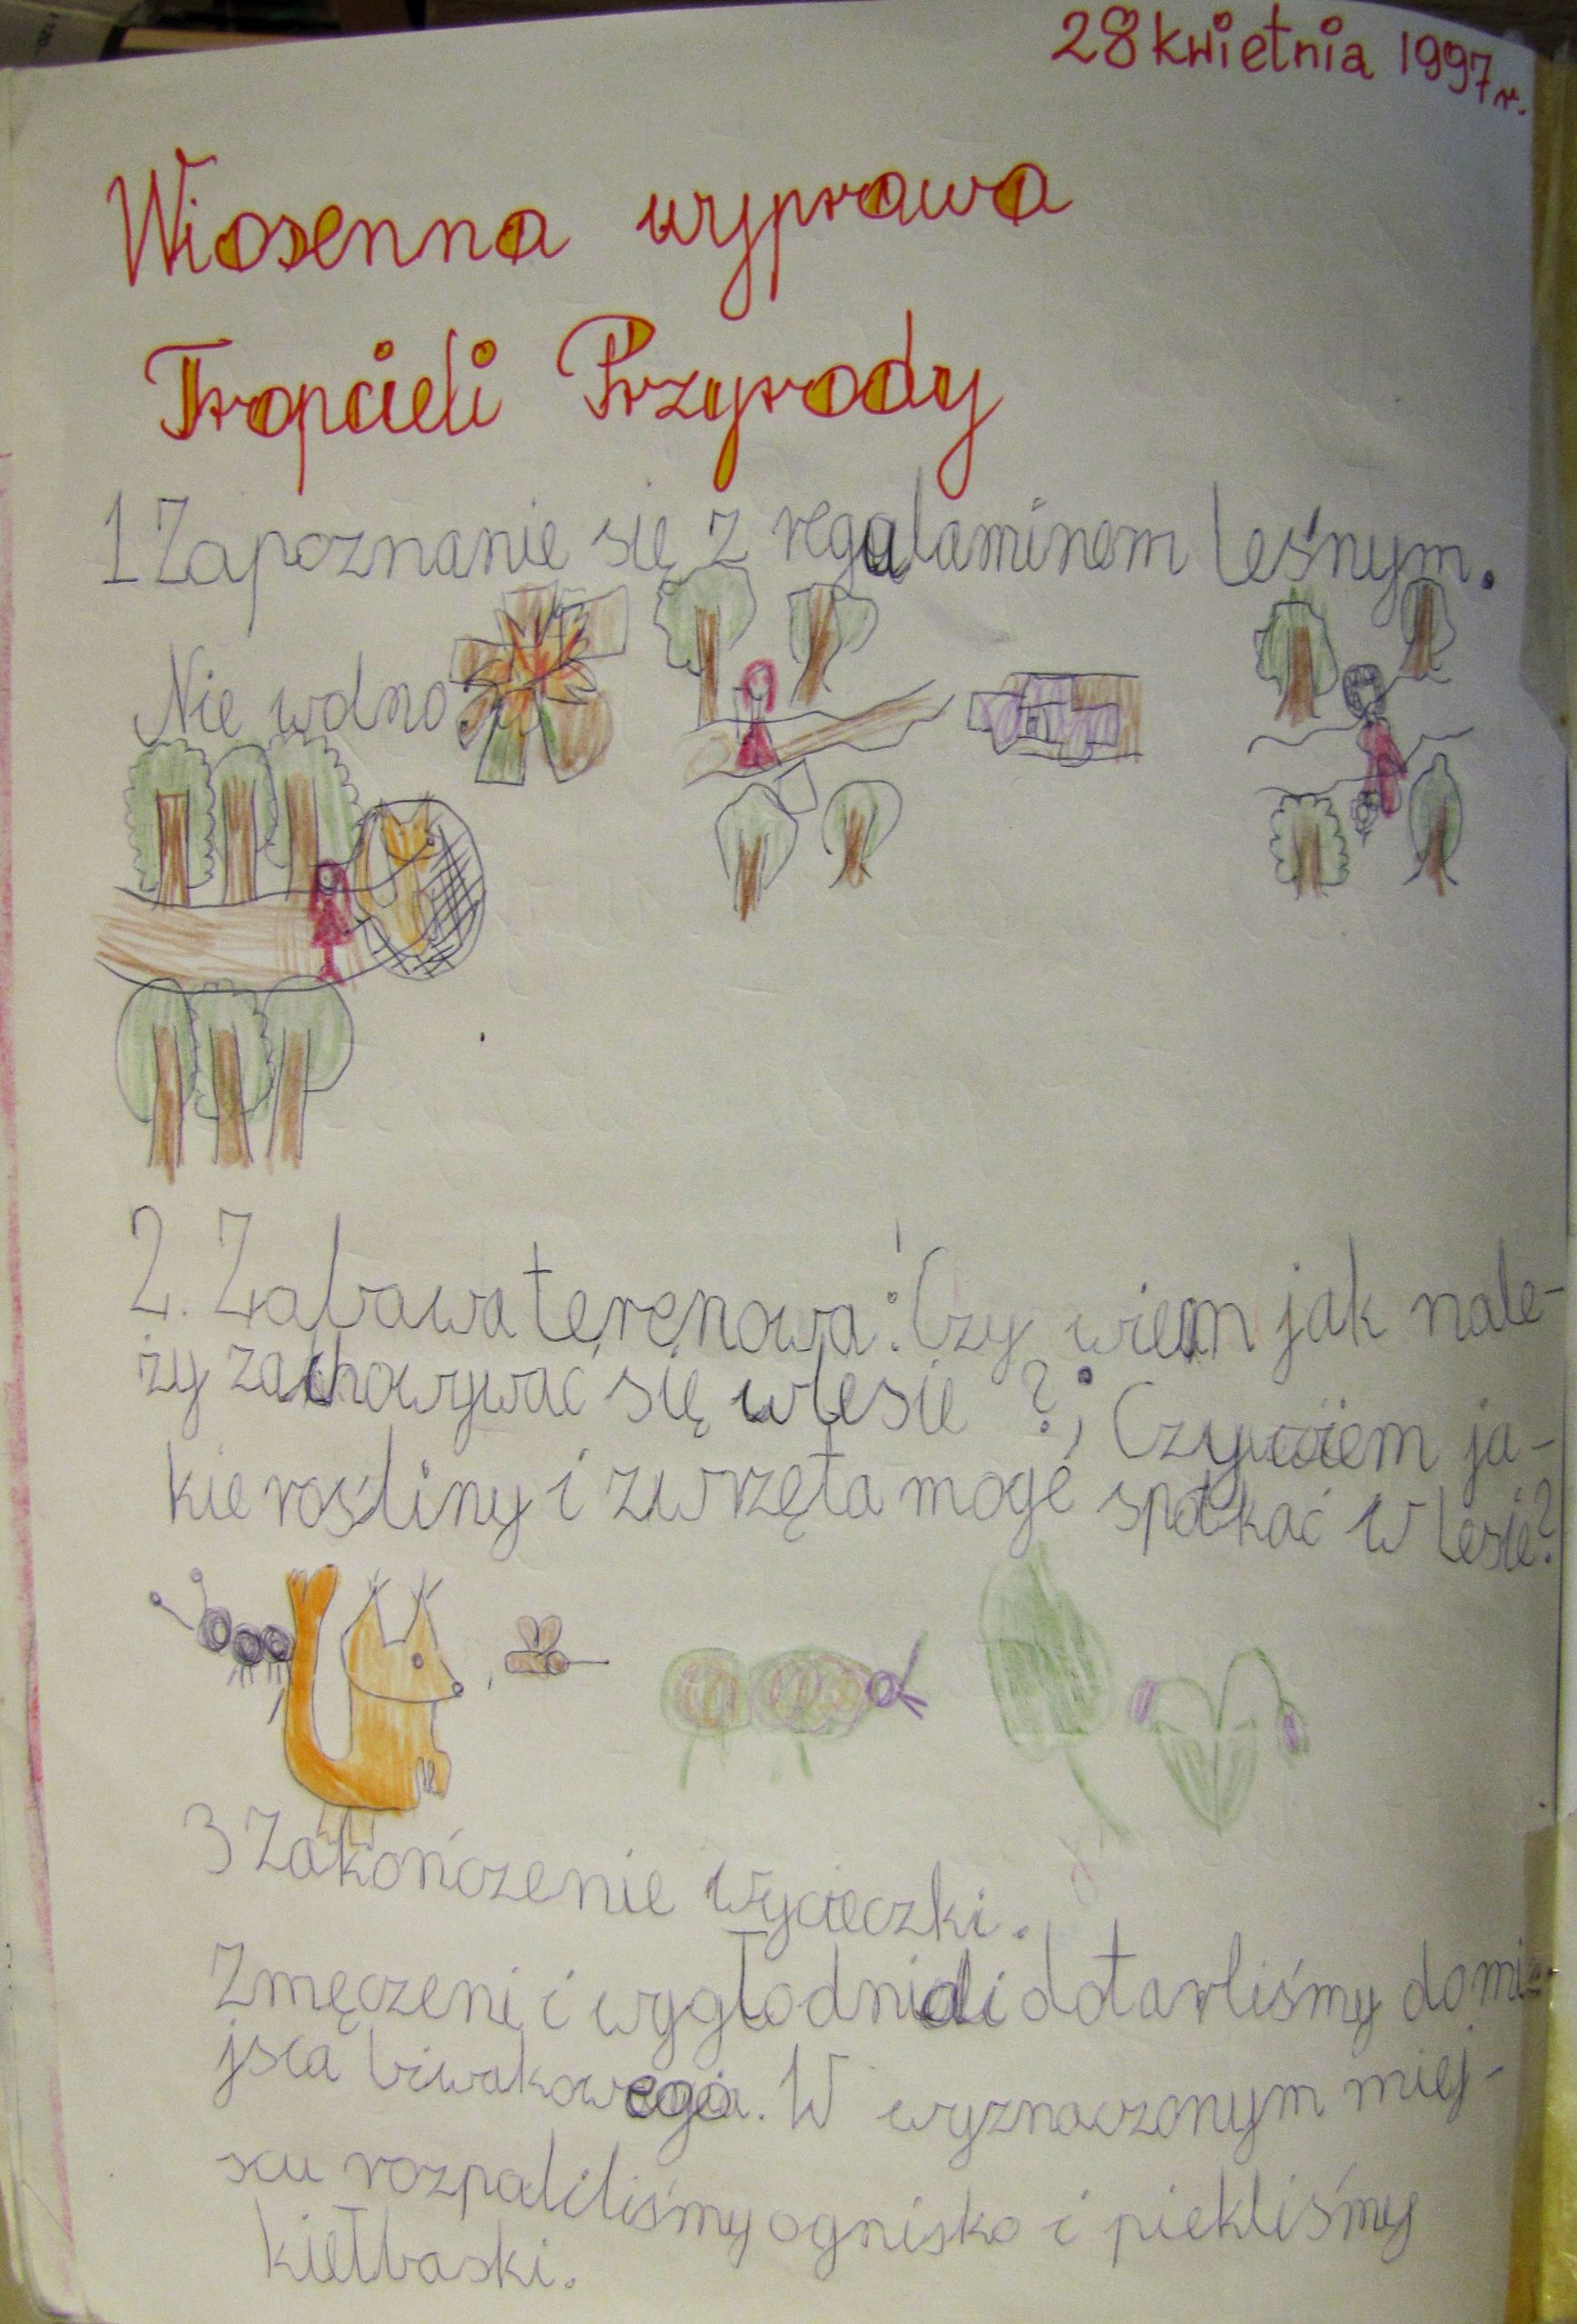 28 kwietnia 1997 r.
Wiosenna wyprawa
Tropicieli Przyrody
1 Zapoznanie się z regulaminem leśnym.
Nie wolno
2. Zabawa terenowa: Czy wiem jak nale-
ży zachowywać się w lesie ?; Czy wiem ja-
kie rośliny i zwrzęta mogę spotkać w lesie?
3 Zakończenie wycieczki.
Zmęczeni i wygłodniali dotarliśmy do mi-
jsca biwakowego. W wyznaczonym miej-
scu rozpaliliśmy ognisko i piekliśmy
kiełbaski.